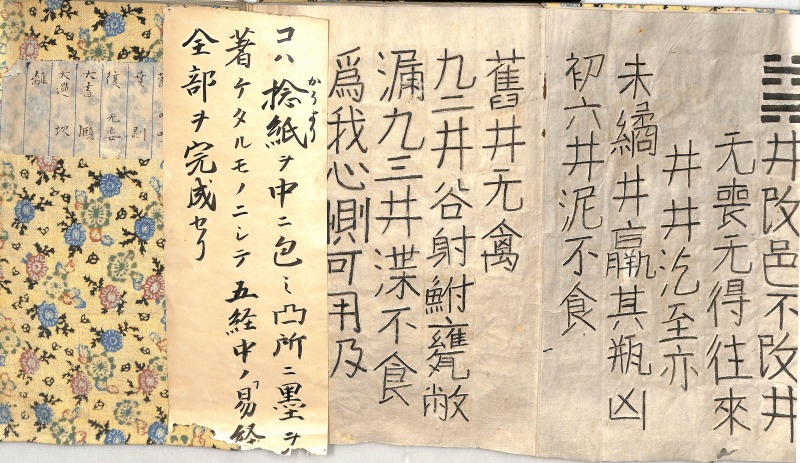 井改邑不改井
无喪无得往來
井井汔至亦
未繘井羸其瓶凶
初六井泥不食
舊井无禽
九二井谷射鮒甕敝
漏九三井渫不食
爲我心惻可用及
かうより
コハ捻紙ヲ中ニ包ミ凸所ニ墨ヲ
著ケタルモノニシテ五経中ノ易経
全部ヲ完成セリ
剥
復 无妄
大畜 頤
大過 坎
離